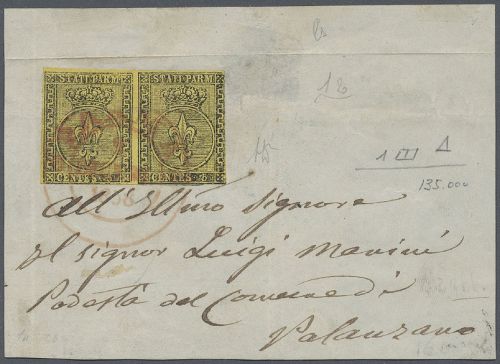 STATI PARM STATI PARM
CENTES. 5 CENTES. 5
12
1 III Δ
135.000
All'Illmo Signore
Il Signor Luigi Manini
Podestà del Comune di
Palanzano